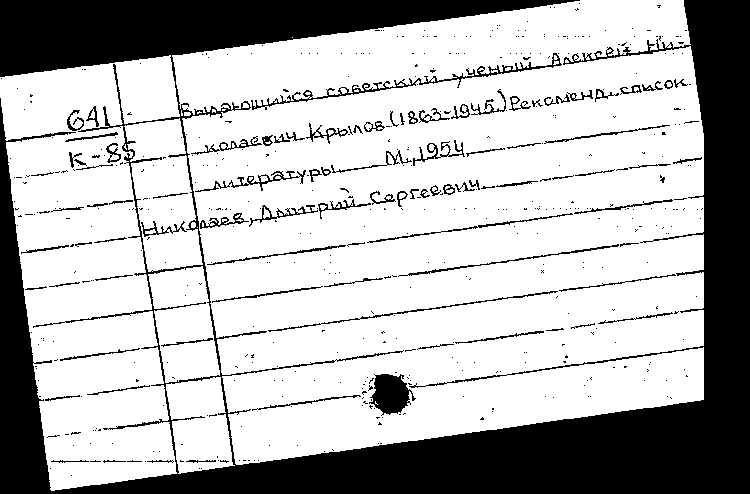 641
К-85
Выдающийся советский ученый Алексей Ни-
колаевич Крылов (1863-1945.) Рекоменд. список
литературы. М., 1954.
Николаев, Дмитрий Сергеевич.